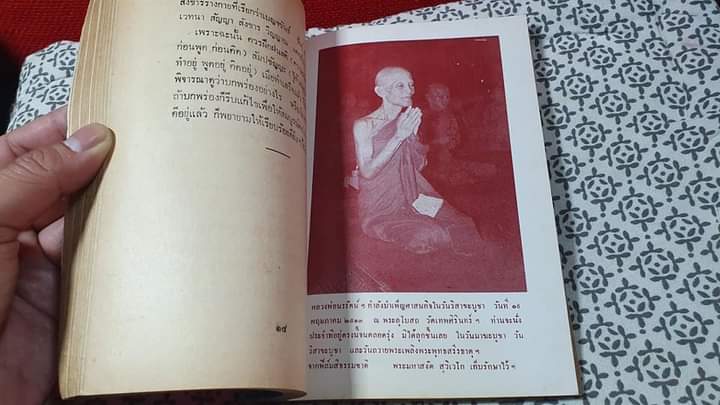 สังขารร่างกายที่เรียกว่าเบญจขันธ์
เวทนา สัญญา สังขาร วิญญาณ
เพราะฉะนั้น ควรฝึกฝนสติ
ก่อนพูด ก่อนคิด) สัมปชัญญะ
ทำอยู่ พูดอยู่ คิดอยู่)
พิจารณาดูว่าบกพร่องอย่างไร
ถ้าบกพร่องก็รีบแก้ไขเพื่อให้
ดีอยู่แล้ว ก็พยายามให้เรียบร้อยดี
๒๔
หลวงพ่อนรรัตน์ ฯ กำลังบำเพ็ญศาสนกิจในวันวิสาขะบูชา วันที่ ๑๘
พฤษภาคม ๒๕๑๓ ณ พระอุโบสถ วัดเทพศิรินทร์ ฯ ท่านจะนั่ง
ประจำที่อยู่ตรงนี้จนตลอดรุ่ง มิได้ลุกขึ้นเลย ในวันมาฆะบูชา วัน
วิสาขะบูชา และวันถวายพระเพลิงพระพุทธสรีรธาตุ ฯ
จากฟิล์มสีธรรมชาติ พระมหาสงัด สุวิเวโก เก็บรักษาไว้ ฯ